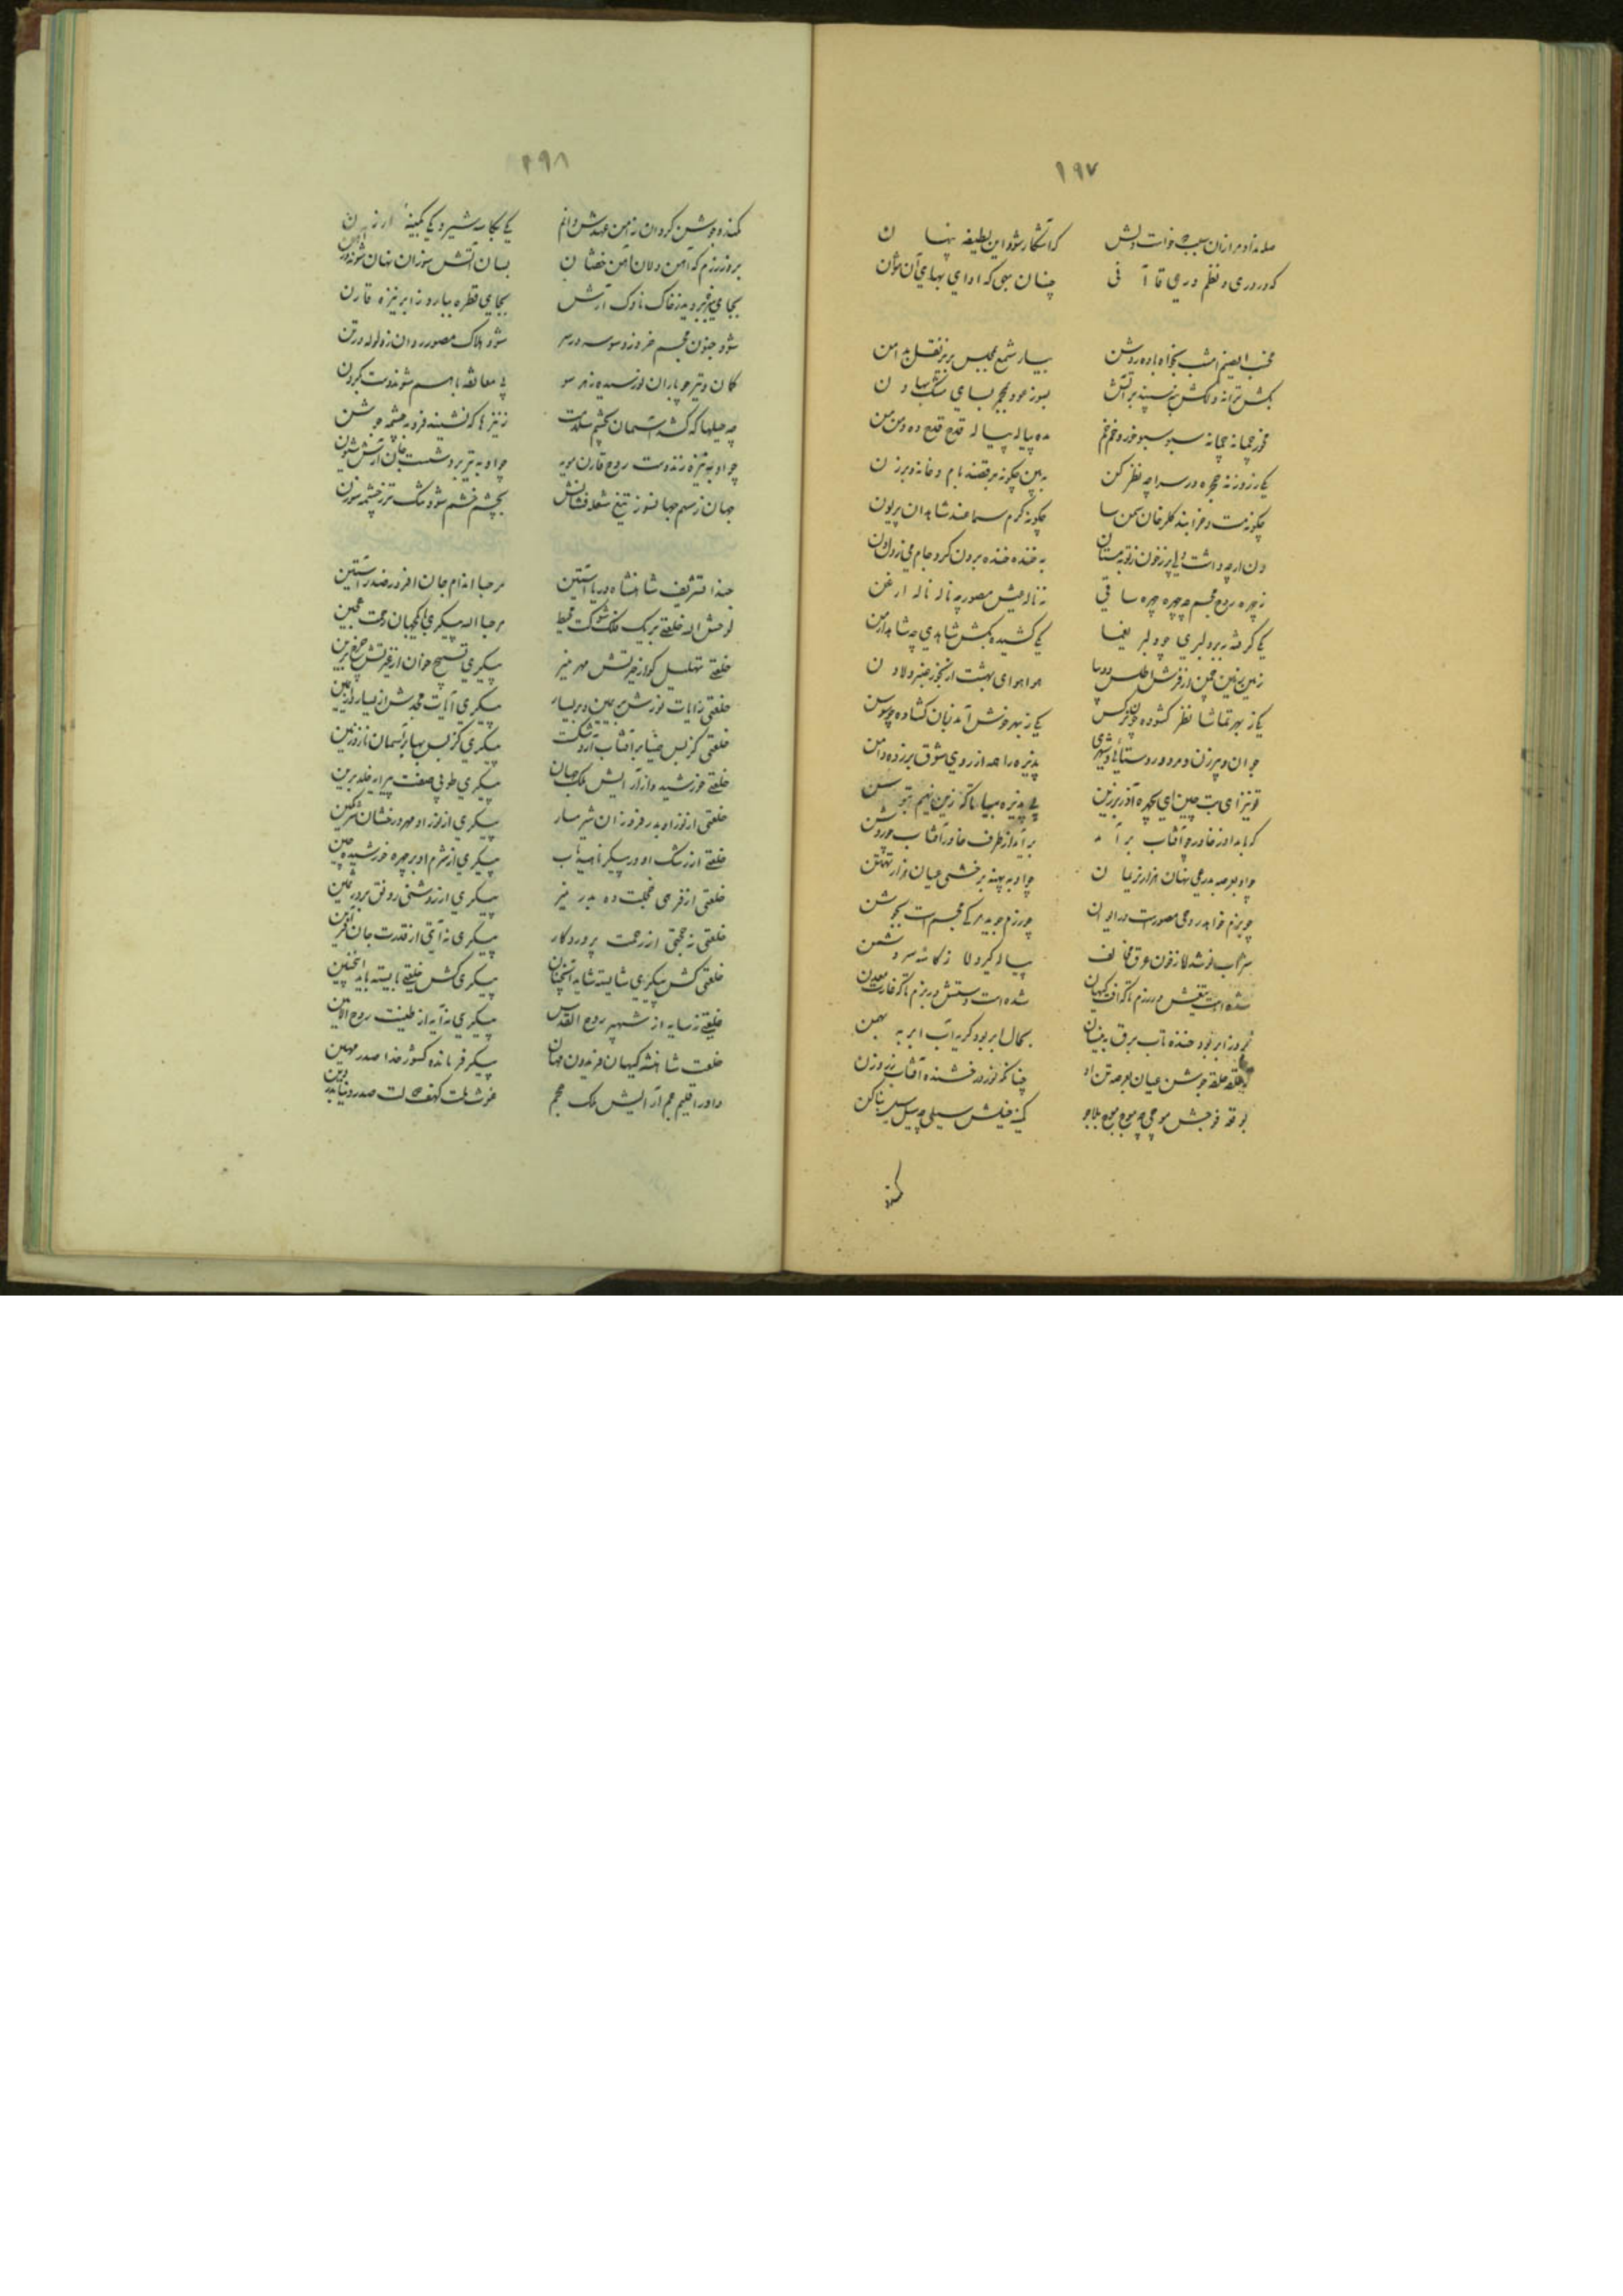 ۱۹۷
صله نداد مرا زان سبب خواست دلش که آشکار شود این لطیفه پنهان
که در دری و نظم دری قاآنی چنان سبی که ادای بهای آن نتوان
مخسب ای صنم امشب بخواه باده روشن بیار شمع بمجلس بریز نقل بدامن
بکش ترانه دلکش بنه سپند بر آتش بسوز عود بمجمر بسای مشک بهاون
بخور چمانه چمانه سبو سبو خور و خم خم بده پیاله پیاله قدح قدح ده و من من
یکی ز روزنه حجره در سراچه نظر کن ببین چگونه برقصند بام و خانه و برزن
چگونه مست و خرابند گلرخان سمن سا چگونه گرم سماعند شاهدان پریون
به خنده خنده برون کرد جام می ز دل دن
ز چهره روح مجسم چه چهره چهره ساقی ز ناله عیش مصور چه ناله ناله ارغن
یکی گرفته ببر دلبری چو دلبر یغما یکی کشیده بکش شاهدی چه شاهد ارمن
زمین زمین چمن از فرش اطلس و دیبا هوا هوای بهشت از بخور عنبر و لادن
یکی ز بهر تماشا نظر گشوده چو نرگس یکی ز بهر خوش آمد زبان گشاده چو سوسن
جوان و پیر زن و مرد و روستائی و شهری پذیره را همه از روی شوق بر زده دامن
تو نیز ای بت چین ای بچهره آذر برزین پی پذیره بیارا که زین نهیم بتوسن
که بامداد ز خاور چو آفتاب بر آمد بر آید از طرف خاور آفتاب چو روشن
چو او بعرصه بدرعی نهان هزار نریمان چو او به پهنه برخشی عیان هزار تهمتن
چو بزم خواهد روحی مصورست در ایوان چو رزم جوید مرگی مجسم است بجوشن
شراب نوشد اما ز خون عرق مخالف پیاله گیرد اما ز کاسه سر دشمن
شده است تیغش در رزم تا که آفت کیهان شده است دستش در بزم تا که غارت معدن
بروز ابر بود خنده تاب برق به نیسان بحال ابر بود گریه آب ابر به بهمن
ز حلقه حلقه جوشن عیان بعرصه تن او چنانکه نور درخشنده آفتاب ز روزن
بوقعه فوجش موجی چه موج موج بلاجو کمینه خیلش سیلی چه سیل سیل بناکن
کمند
۱۹۸
کمند و جوشن گردان ز آهن وندانم یکی بکاسه شیر و یکی بکینه ارژن
بروز رزم که آهن دلان آهن خفتان بسان آتش سوزان نهان شوند در آهن
بجای سبزه بروید ز خاک ناوک آرش بجای قطره ببارد ز ابر نیزه قارن
شود جنون مجسم خرد ز وسوسه در سر شود هلاک مصور روان ز ولوله در تن
کمان و تیر چو یاران نو رسیده ز هر سو پی معانقه با هم شوند دست بگردن
چه حیلها که کند آسمان بچشم سلامت ز نیزها که نشیند فرو بچشمه جوشن
چو او به نیزه زند دست روح قارن مویه چو او به تیر برد شست جان آرش شیون
جهان ز سهم جهانسوز تیغ شعله فشانش بچشم خشم شود تنگ تر ز چشمه سوزن
حبذا تشریف شاهنشاه دریا آستین مرحبا اندام جان افروز صدر راستین
لوحش الله خلعتی بر یک فلک شوکت محیط مرحبا الله پیکری با یک جهان رحمت عجین
خلعتی تهلیل گو از حیرتش مهر منیر پیکری تسبیح خوان از غیرتش چرخ برین
خلعتی رایات نورش بر یمین و بر یسار پیکری آیات مجدش از یسار و از یمین
خلعتی کز بس ضیا بر آفتاب آرد شکست پیکری کز بس بها بر آسمان نازد زمین
خلعتی خورشید وار آرایش ملک جهان پیکری طوبی صفت پیرایه خلد برین
خلعتی از نور او بدر فروزان شرمسار پیکری از نور او مهر درخشان شرمگین
خلعتی از رشک او در پیکر ناهید تاب پیکری از شرم او بر چهره خورشید چین
خلعتی از فرهی خجلت ده بدر منیر پیکری از روشنی رونق بر در ثمین
خلعتی نه حجتی از رحمت پروردگار پیکری نه آیتی از قدرت جان آفرین
خلعتی کش پیکری شایسته شاید آنچنان پیکری کش خلعتی بایسته باید اینچنین
خلعتی نه سایه از شهپر روح القدس پیکری نه آیه از طینت روح الامین
خلعت شاهنشه کیهان فریدون جهان پیکر فرمانده کشور خدا صدر مهین
داور اقلیم جم آرایش ملک عجم غوث ملت کهف دولت صدر دنیا بدر دین